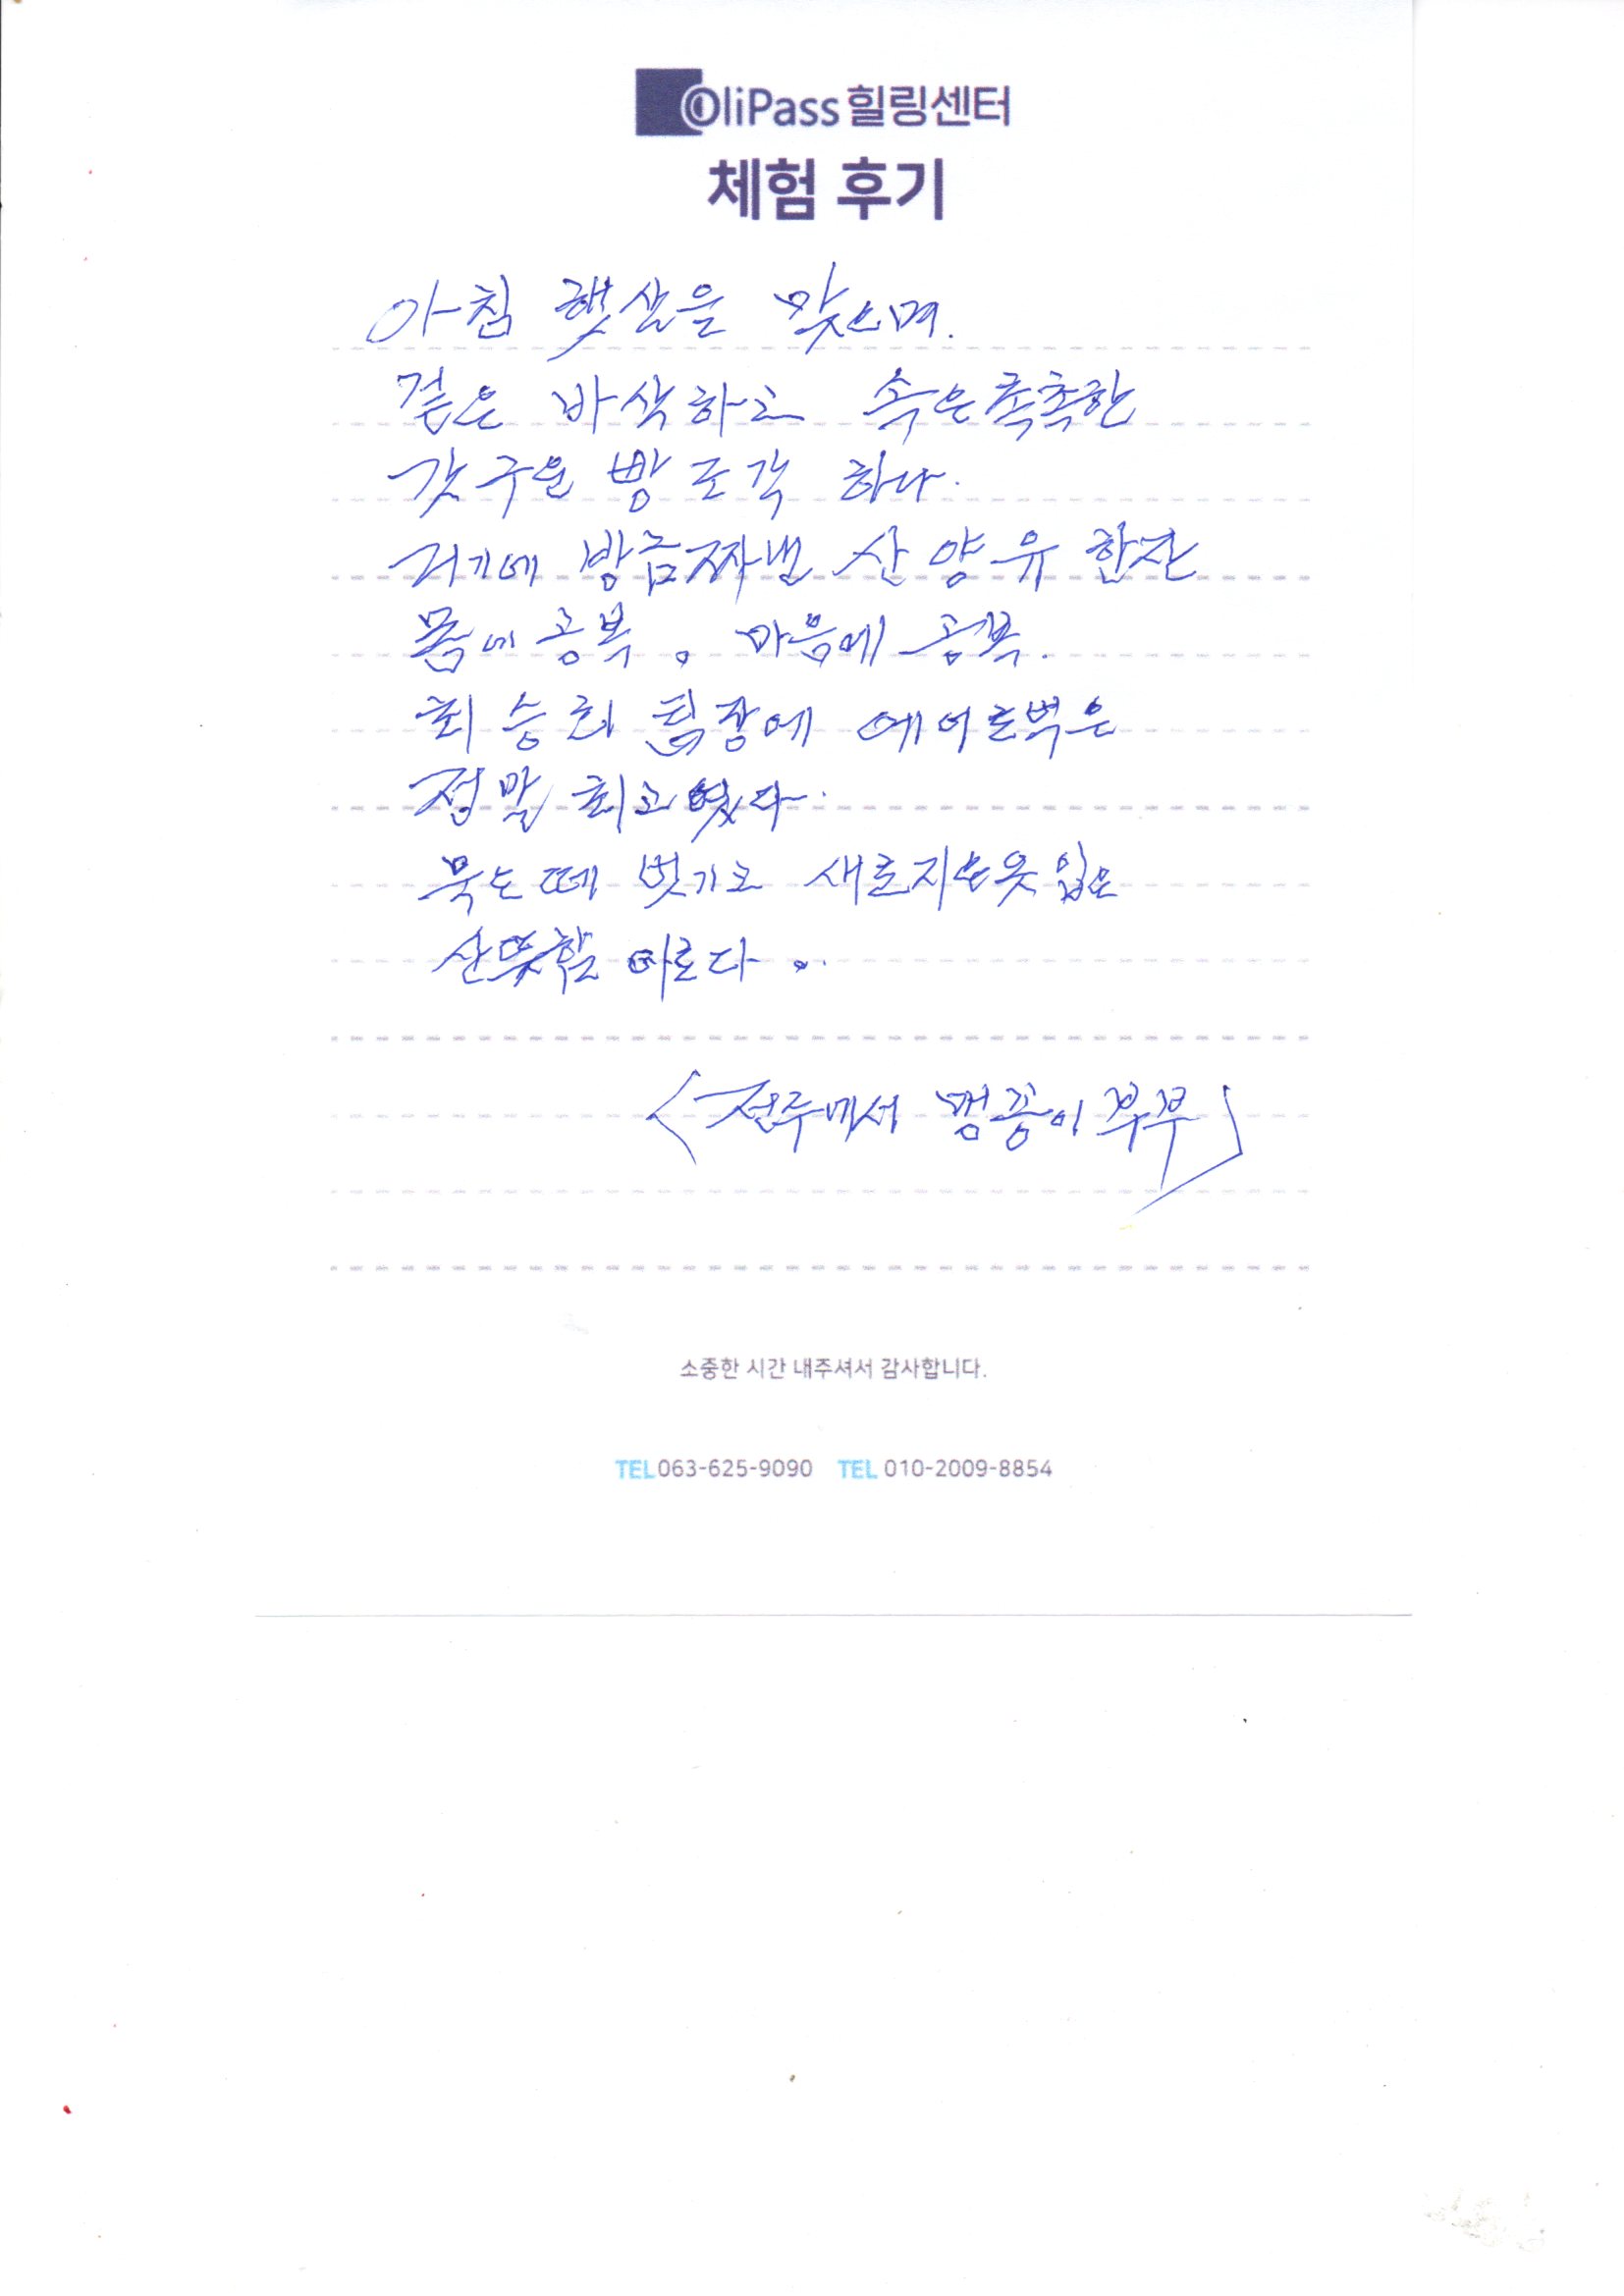 OliPass 힐링센터
체험 후기
아침 햇살을 맞으며.
겉은 바삭하고 속은촉촉한
갓 구운 빵 조각 하나.
거기에 방금짜낸 산양유 한잔
몸에 공복. 마음에 공복.
최승희 팀장에 에어로빅은
정말 최고였다.
묵은 떼 벗기고 새로지은옷 입은
산뜻함 이로다.
<전주에서 맹꽁이 부부>
소중한 시간 내주셔서 감사합니다.
TEL 063-625-9090 TEL 010-2009-8854